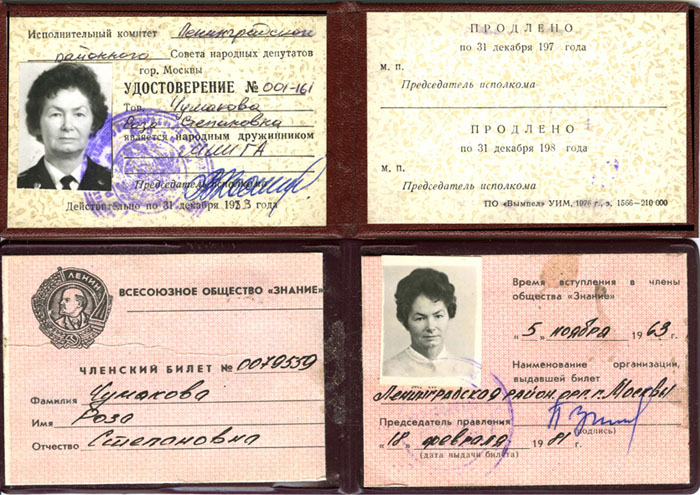 Исполнительный комитет Ленинградского
районного Совета народных депутатов
гор. Москвы
УДОСТОВЕРЕНИЕ № 001-161
Тов. Чумакова
Роза Степановна
является народным дружинником
Председатель исполкома
Действительно по 31 декабря 1983 года
ПРОДЛЕНО
по 31 декабря 197 года
М. П.
Председатель исполкома
ПРОДЛЕНО
по 31 декабря 198 года
М. П.
Председатель исполкома
ПО «Вымпел» УИМ, 1976 г., з. 1566—210 000
ЛЕНИН
ВСЕСОЮЗНОЕ ОБЩЕСТВО «ЗНАНИЕ»
ЧЛЕНСКИЙ БИЛЕТ № 0079559
Фамилия Чумакова
Имя Роза
Отчество Степановна
Время вступления в члены
общества «Знание»
„5„ ноября 1963 г.
Наименование организации,
выдавшей билет
Ленинградская район. орг. г. Москвы
Председатель правления
(подпись)
„18„ февраля 1981 г.
(дата выдачи билета)